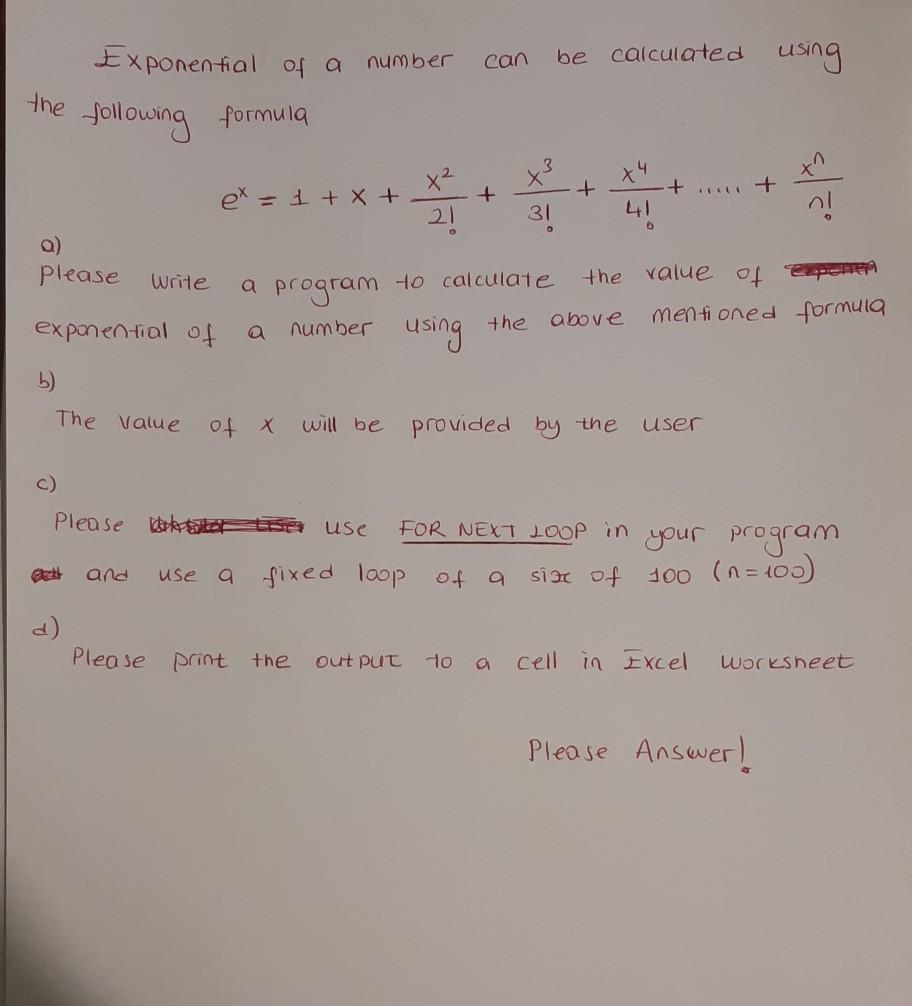 Exponential of a number can be calculated using
the following formula
e^x = 1 + x + x^2/2! + x^3/3! + x^4/4! + ..... + x^n/n!
a)
please write a program to calculate the value of
exponential of a number using the above mentioned formula
b)
The value of x will be provided by the user
c)
Please use FOR NEXT LOOP in your program
and use a fixed loop of a size of 100 (n=100)
d)
Please print the output to a cell in Excel worksheet
Please Answer!